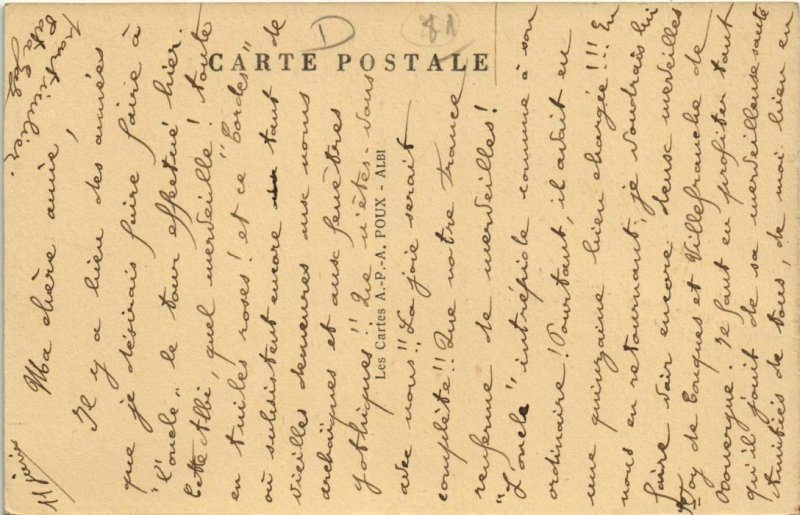 CARTE POSTALE
D
81
Les Cartes A.-P.-A. POUX - ALBI
11 juin
Ma chère amie,
Il y a bien des années
que je désirais faire faire à
"l'oncle" le tour effectué hier.
Cette Albi, quel merveille! toute
en tuiles roses! et ce "Cordes"
où subsistent encore tant de
vieilles demeures aux murs
archaïques et aux fenêtres
gothiques!! Que n'êtes-vous
avec nous!! La joie serait
complète!! Que notre France
renferme de merveilles!
"L'oncle" intrépide comme à son
ordinaire! Pourtant, il avait eu
une quinzaine bien chargée!!! En
nous en retournant, je voudrais lui
faire voir encore deux merveilles
de Conques et Villefranche de
Rouergue. Il faut en profiter tant
qu'il jouit de sa merveilleuse santé
Amitiés de tous, de moi bien en